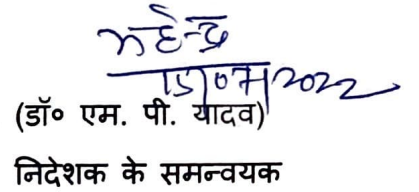 महेन्द्र
15/07/2022
(डॉ० एम. पी. यादव)
निदेशक के समन्वयक